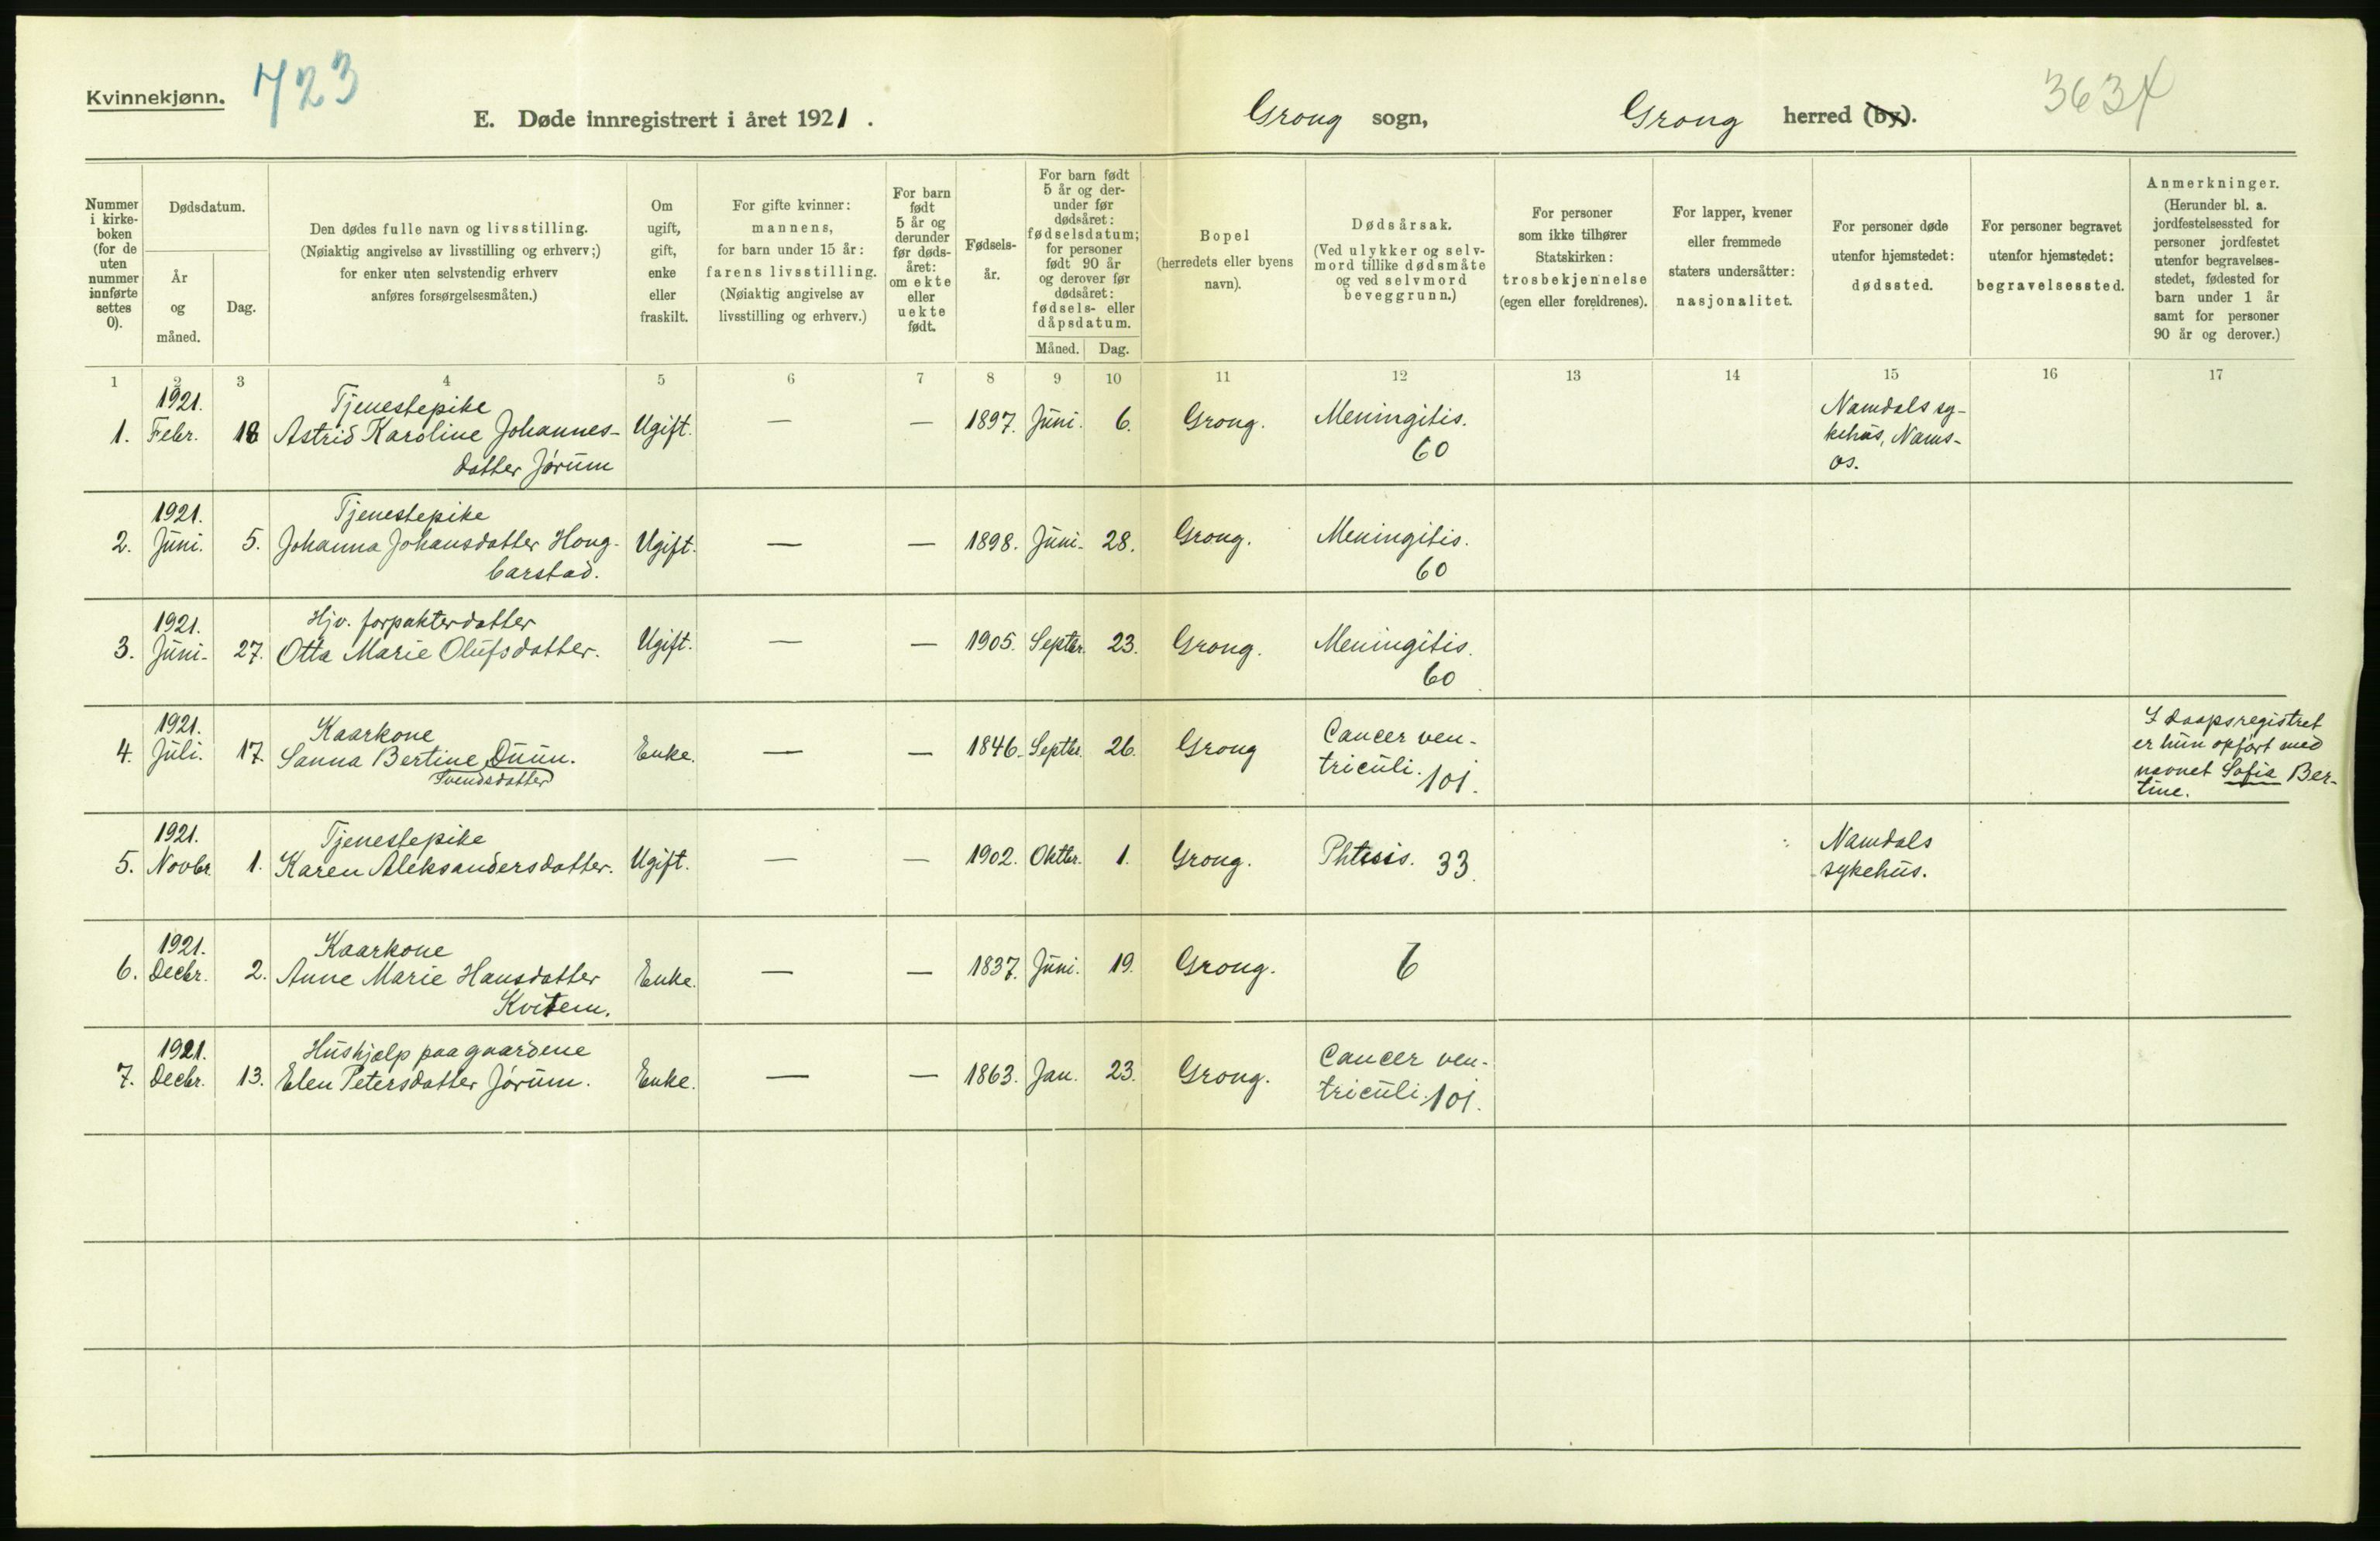 Kvinnekjønn.
723
E. Døde innregistrert i året 1921.
Grong sogn,
Grong herred (by).
3634
Nummer i kirkeboken (for de uten nummer innførte settes 0).
Dødsdatum.
År og måned.
Dag.
Den dødes fulle navn og livsstilling.
(Nøiaktig angivelse av livsstilling og erhverv;)
for enker uten selvstendig erhverv
anføres forsørgelsesmåten.)
Om ugift, gift, enke eller fraskilt.
For gifte kvinner:
mannens,
for barn under 15 år:
farens livsstilling.
(Nøiaktig angivelse av
livsstilling og erhverv.)
For barn født 5 år og derunder før dødsåret: om ekte eller uekte født.
Fødselsår.
For barn født 5 år og derunder før dødsåret: fødselsdatum; for personer født 90 år og derover før dødsåret: fødsels- eller dåpsdatum.
Måned. Dag.
Bopel
(herredets eller byens
navn).
Dødsårsak.
(Ved ulykker og selvmord tillike dødsmåte og ved selvmord beveggrunn.)
For personer
som ikke tilhører
Statskirken:
trosbekjennelse
(egen eller foreldrenes).
For lapper, kvener
eller fremmede
staters undersåtter:
nasjonalitet.
For personer døde
utenfor hjemstedet:
dødssted.
For personer begravet
utenfor hjemstedet:
begravelsessted.
Anmerkninger.
(Herunder bl. a.
jordfestelsessted for
personer jordfestet
utenfor begravelses-
stedet, fødested for
barn under 1 år
samt for personer
90 år og derover.)
1 2 3 4 5 6 7 8 9 10 11 12 13 14 15 16 17
1921. Tjenestepike
1. Febr. 18 Astrid Karoline Johannes- Ugift. — — 1897. Juni. 6. Grong. Meningitis. Namdals sy-
datter Jørum 60 kehus, Nams-
os.
1921. Tjenestepike
2. Juni. 5. Johanna Johansdatter Hong- Ugift. — — 1898. Juni. 28. Grong. Meningitis.
barstad. 60
1921. Hjv. forpakterdatter
3. Juni. 27. Otta Marie Olufsdatter. Ugift. — — 1905. Septbr. 23. Grong. Meningitis.
60
1921. Kaarkone
4. Juli. 17. Sanna Bertine Duun. Enke. — — 1846. Septbr. 26. Grong Cancer ven-
Svendsdatter triculi. 101.
I daapsregistret
er hun opført med
navnet Sofie Ber-
tine.
1921. Tjenestepike
5. Novbr. 1. Karen Aleksandersdatter. Ugift. — — 1902. Oktbr. 1. Grong. Phtisis. 33. Namdals
sykehus.
1921. Kaarkone
6. Decbr. 2. Anne Marie Hansdatter Enke. — — 1837. Juni. 19. Grong. 6
Kvitem.
1921. Hushjælp paa gaardene
7. Decbr. 13. Elen Petersdatter Jørum. Enke. — — 1863. Jan. 23. Grong. Cancer ven-
triculi. 101.